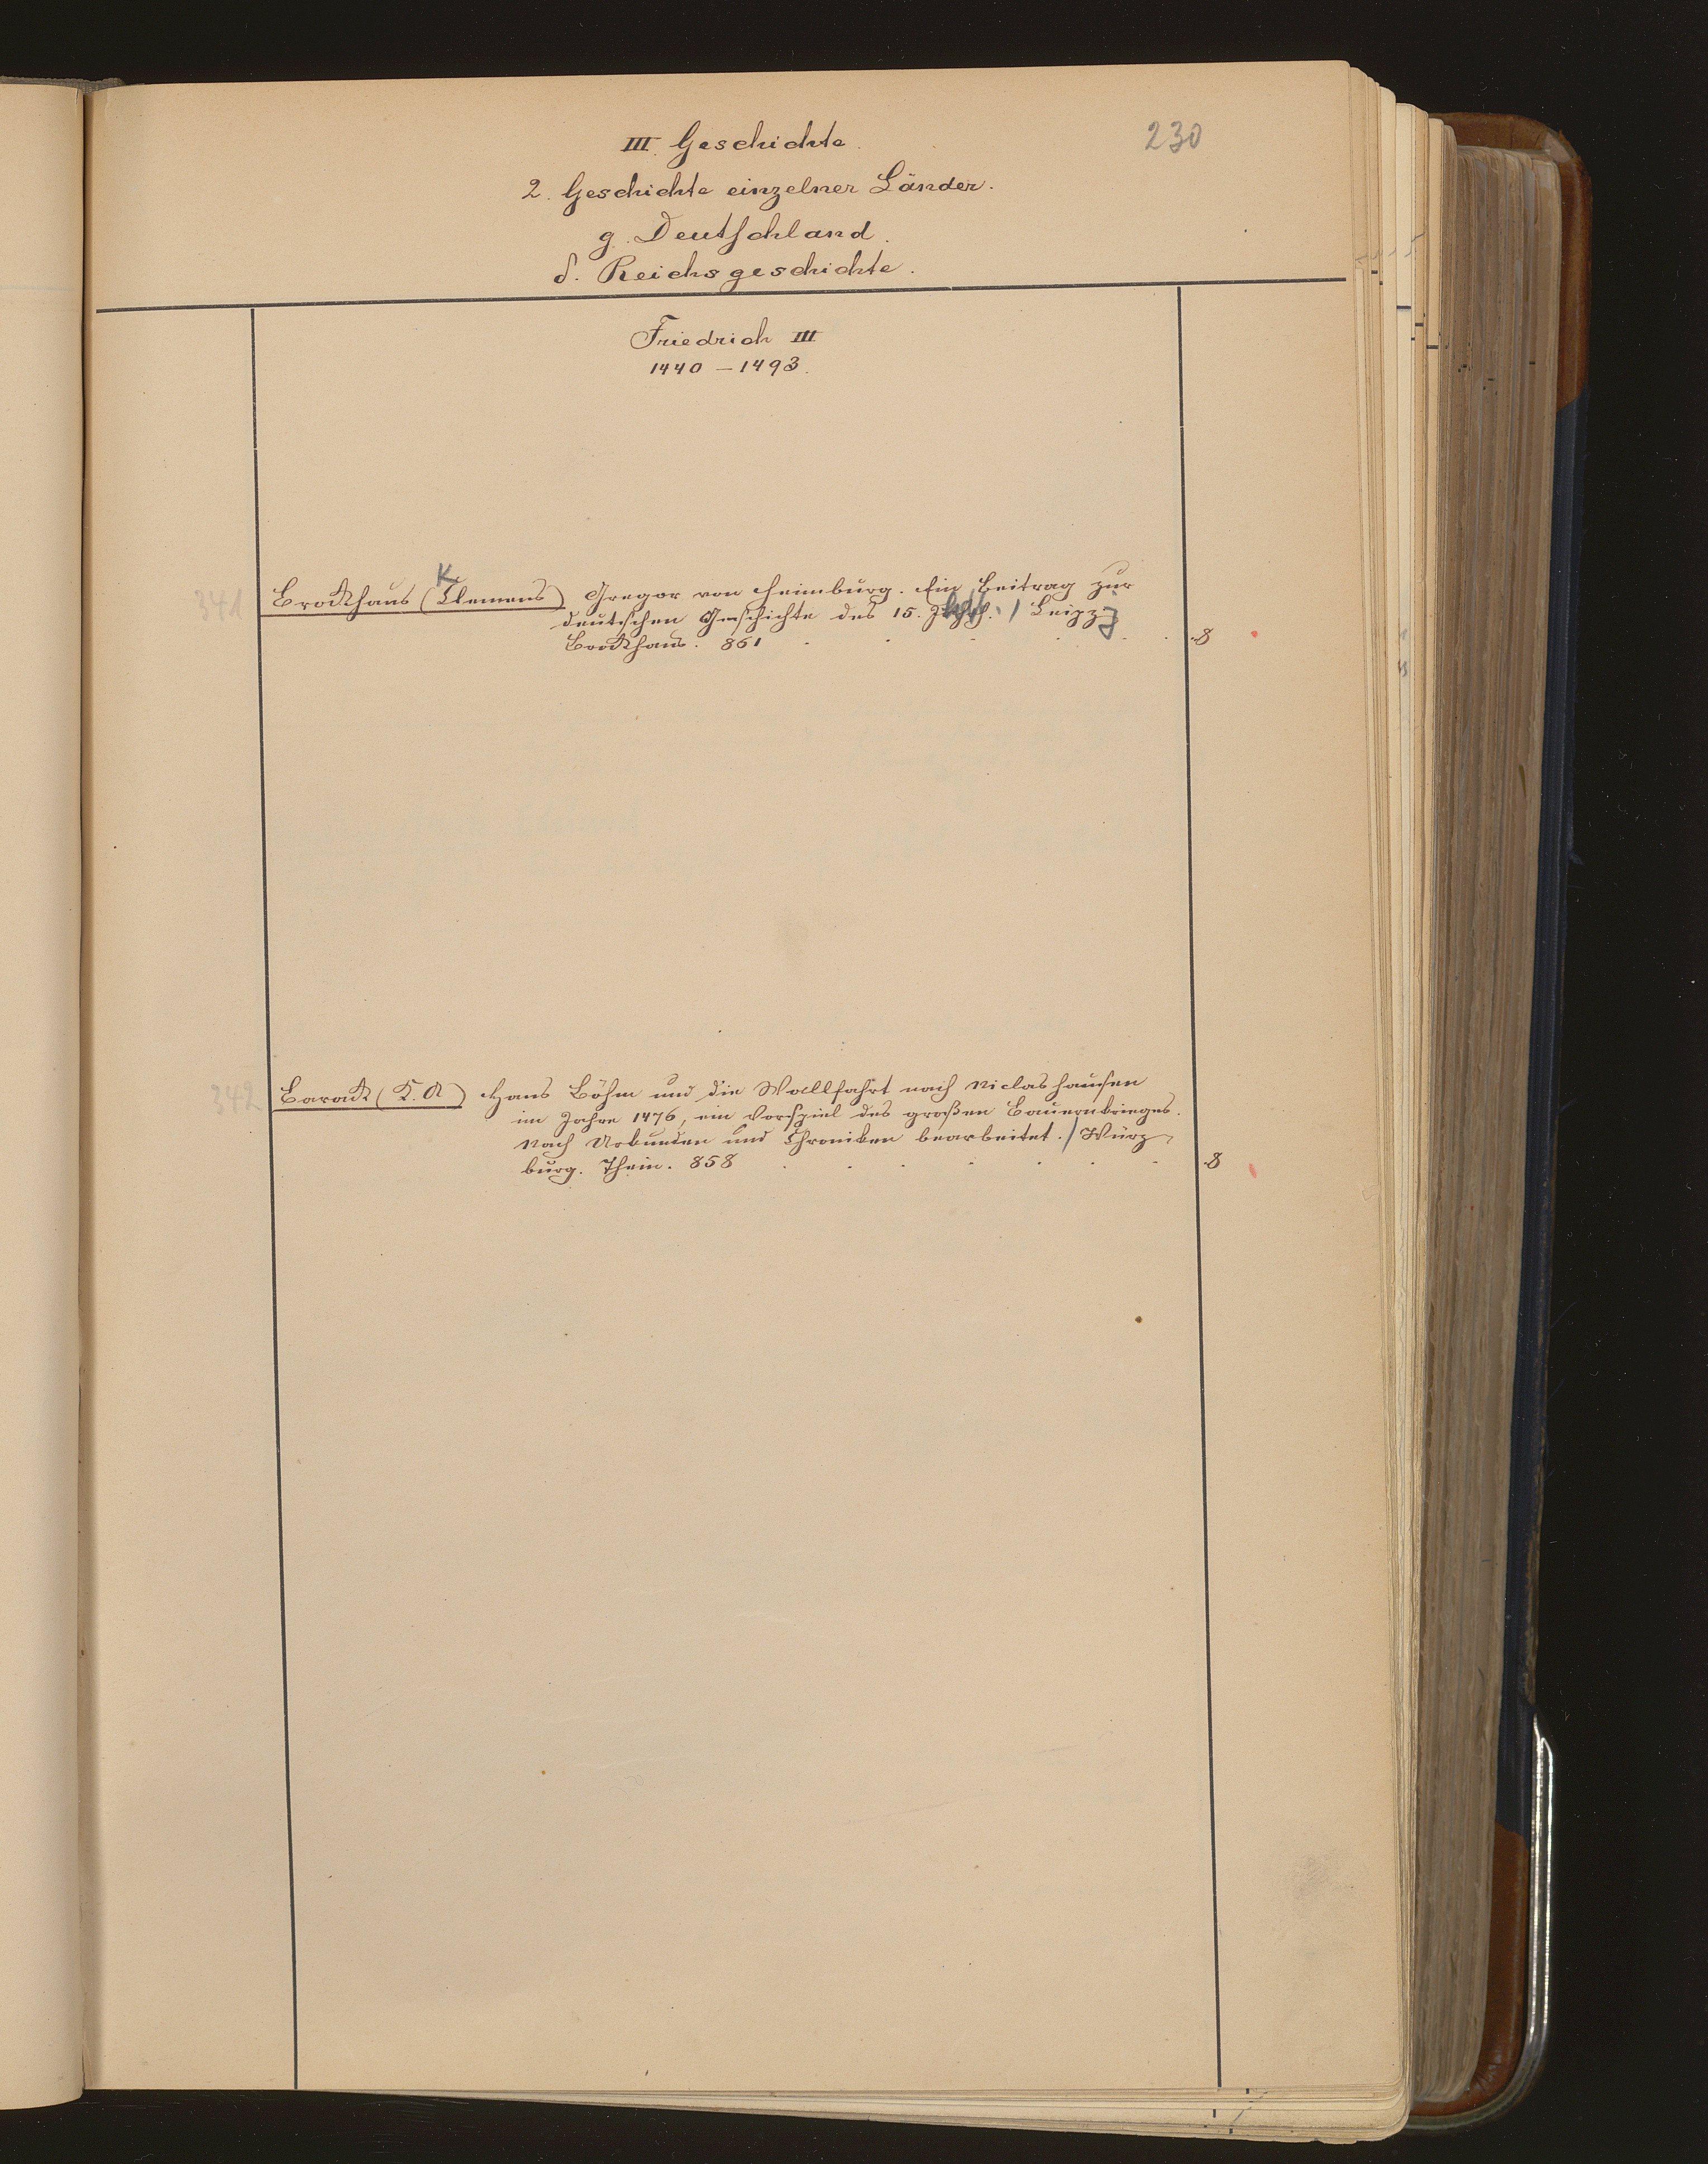 230
III. Geschichte.
2. Geschichte einzelner Länder.
g. Deutschland.
δ. Reichsgeschichte.
Friedrich III
1440 – 1493.
341
K
Brockhaus (Clemens) Gregor von Heimburg. Ein Beitrag zur
deutschen Geschichte des 15. Jahrh. / Leipzg
Brockhaus. 861 . . . . . 8
342
Barack (K. A) Hans Böhm und die Wallfahrt nach Niclashausen
im Jahre 1476, ein Vorspiel des großen Bauernkrieges.
Nach Urkunden und Chroniken bearbeitet. / Würz-
burg. Thein. 858 . . . . . . 8